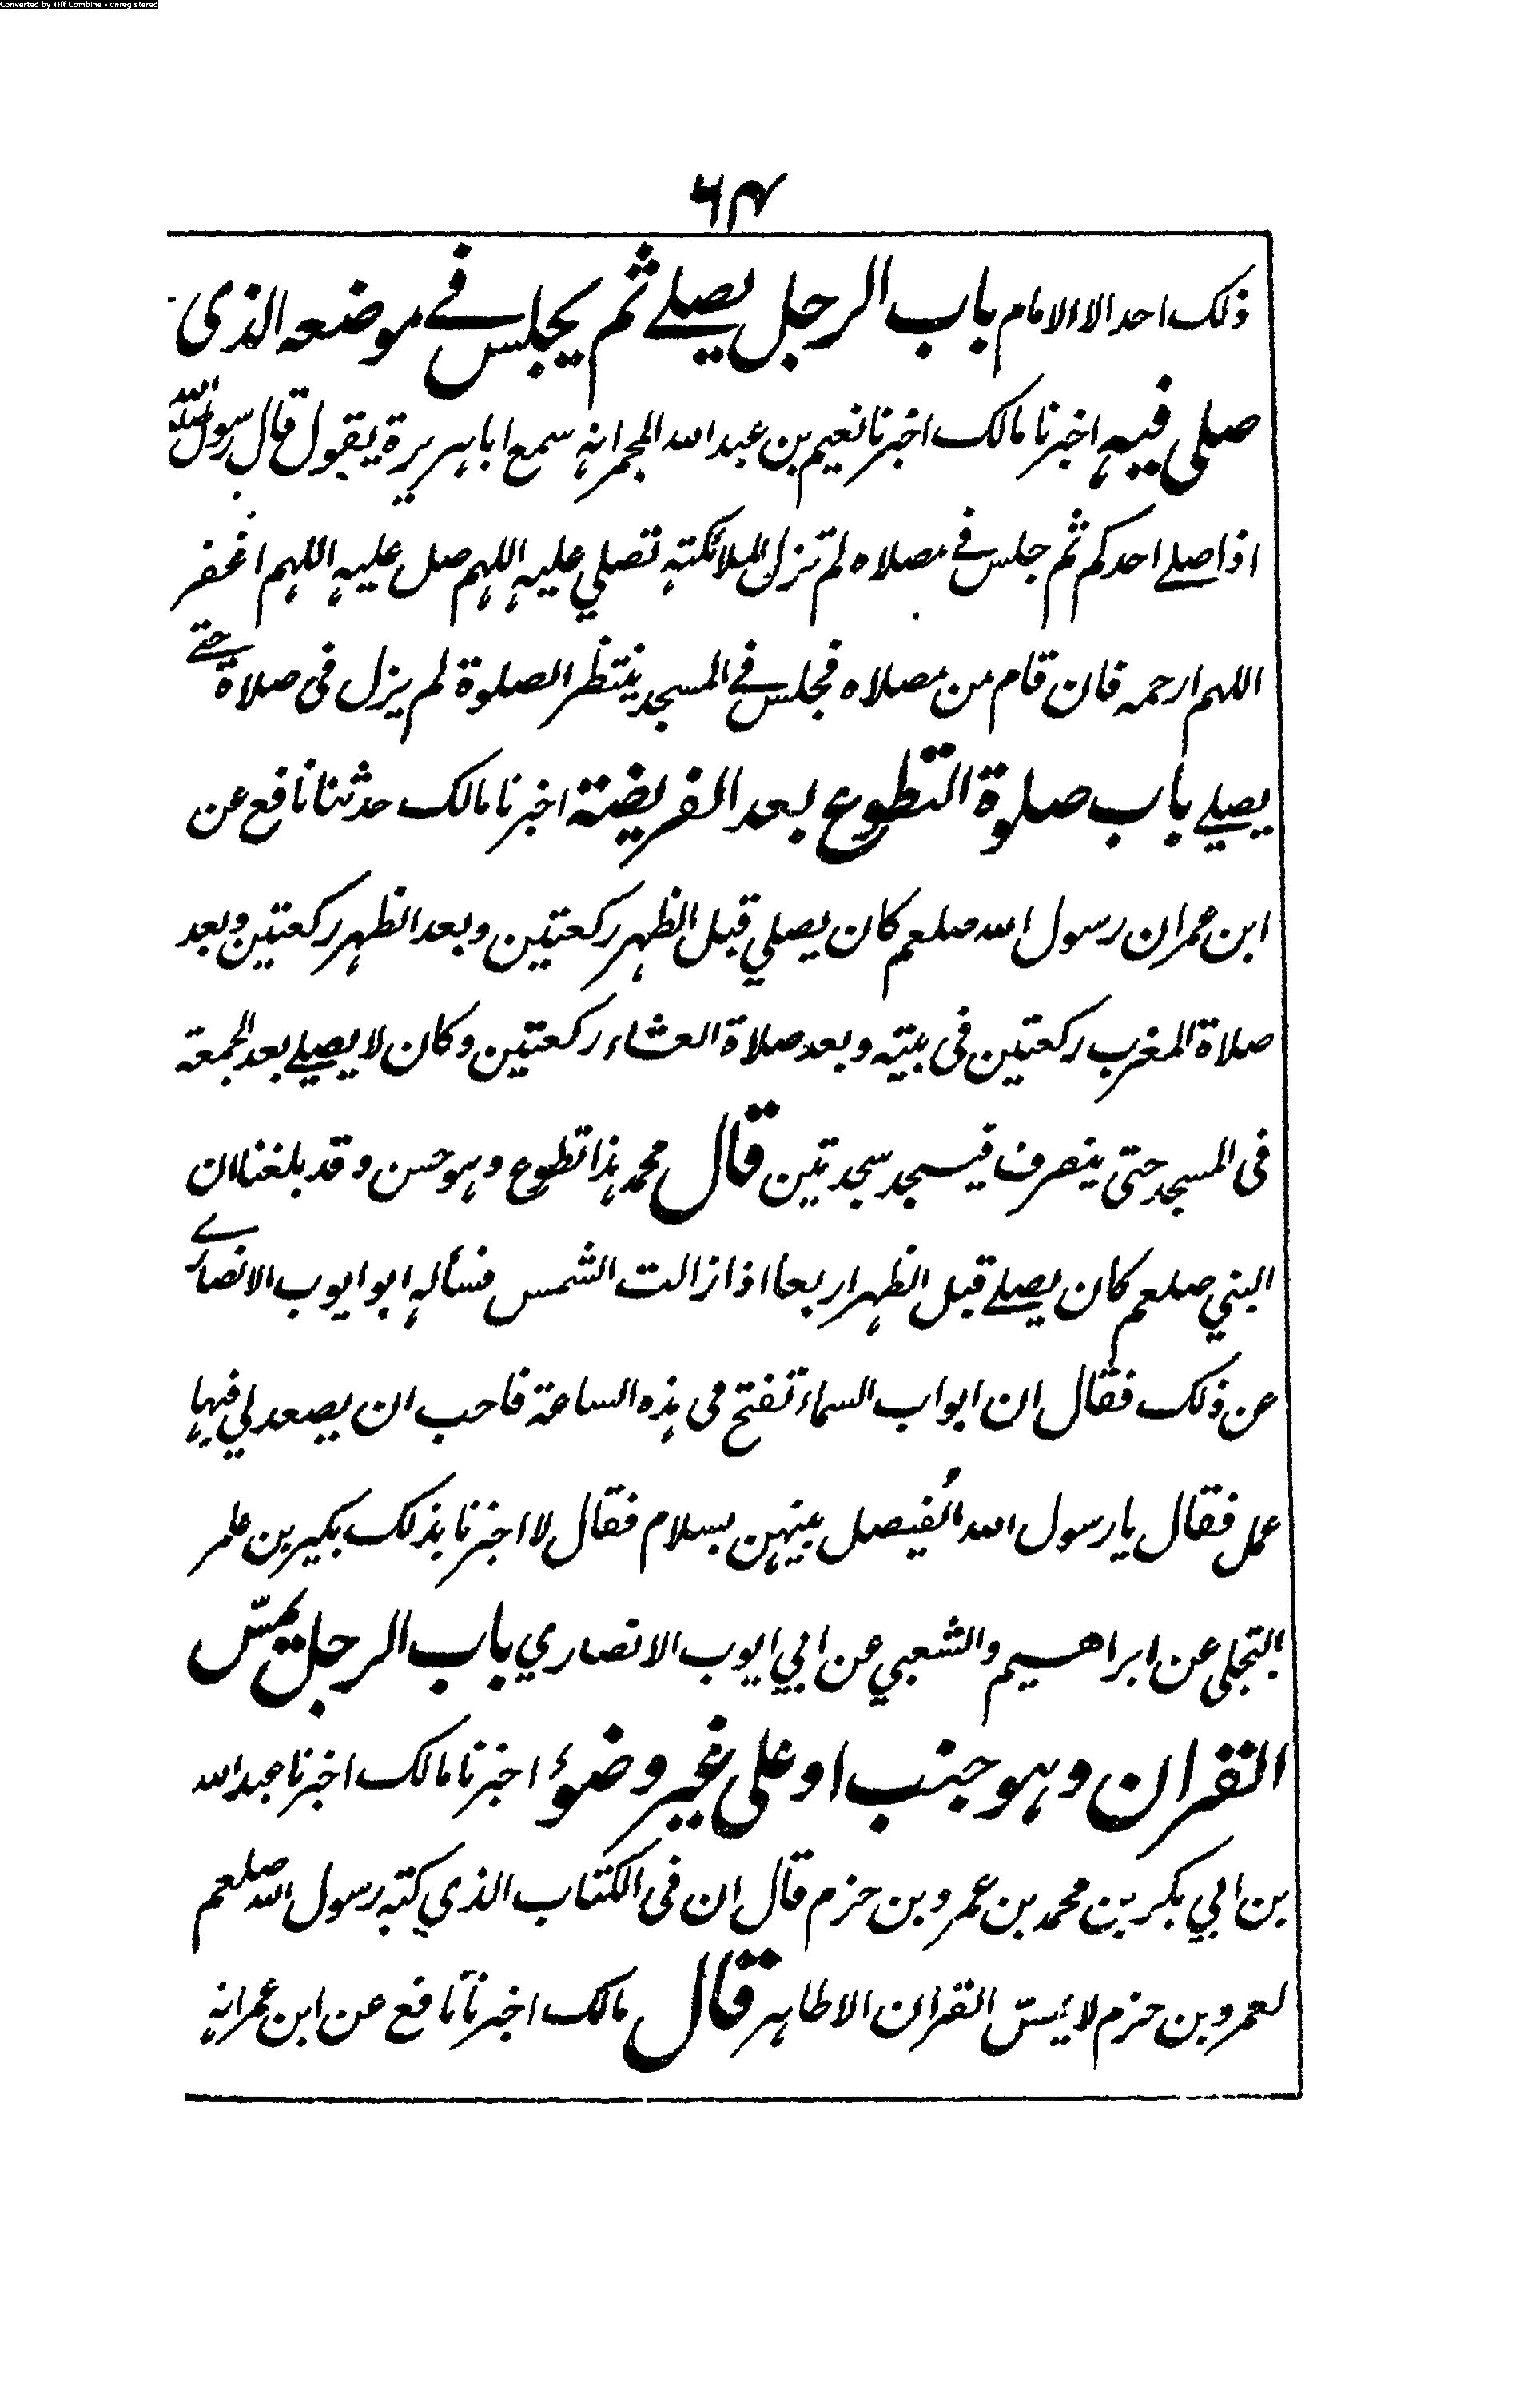 Converted by Tiff Combine - unregistered
٦٤
ذلك احد الا الامام باب الرجل يصلے ثم يجلس فے موضعه الذى
صلى فيه اخبرنا مالك اخبرنا نعيم بن عبد الله المجمر انه سمع اباهريرة يقول قال رسول الله
اذا صلے احدكم ثم جلس فے مصلاه لم تزل الملائكته تصلي عليه اللهم صل عليه اللهم اغفر
اللهم ارحمه فان قام من مصلاه فجلس فے المسجد ينتظر الصلوة لم يزل فى صلاة حتے
يصلے باب صلوة التطوع بعد الفريضة اخبرنا مالك حدثنا نافع عن
ابن عمر ان رسول الله صلعم كان يصلي قبل الظهر ركعتين وبعد الظهر ركعتين وبعد
صلاة المغرب ركعتين فى بيته وبعد صلاة العشاء ركعتين وكان لا يصلے بعد الجمعة
فى المسجد حتى ينصرف فيسجد سجدتين قال محمد هذا تطوع وهو حسن وقد بلغنا ان
النبي صلعم كان يصلے قبل الظهر اربعا اذا زالت الشمس فسأله ابو ايوب الانصارے
عن ذلك فقال ان ابواب السماء تفتح فى هذه الساعة فاحب ان يصعد لي فيها
عمل فقال يا رسول الله اَيُفيصل بينهن بسلام فقال لا اخبرنا بذلك بكير بن عامر
البجلى عن ابراهيم والشعبي عن ابي ايوب الانصاري باب الرجل يمسّ
القران وهو جنب او على غير وضوء اخبرنا مالك اخبرنا عبد الله
بن ابي بكر بن محمد بن عمرو بن حزم قال ان فى الكتاب الذي كتبه رسول الله صلعم
لعمرو بن حزم لا يمسّ القران الا طاهر قال مالك اخبرنا نافع عن ابن عمر انه